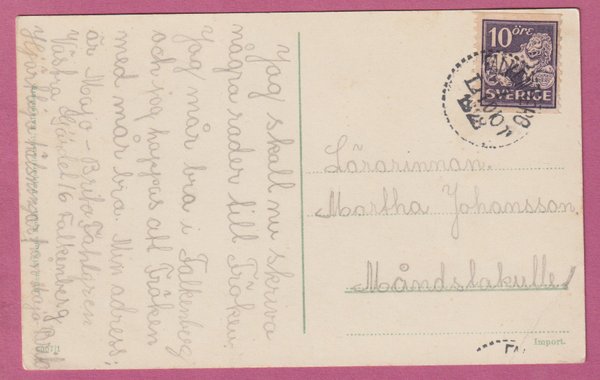 Jag skall nu skriva
några rader till Fröken.
Jag mår bra i Falkenberg
och jag hoppas att Fröken
med mår bra. Min adress:
är Majo-Brita
Västra Gärdet 16 Falkenberg
Hjärtliga hälsningar från Majo Brita
10 ÖRE
SVERIGE
Lärarinnan.
Martha Johansson
Måndslakulle
Import.